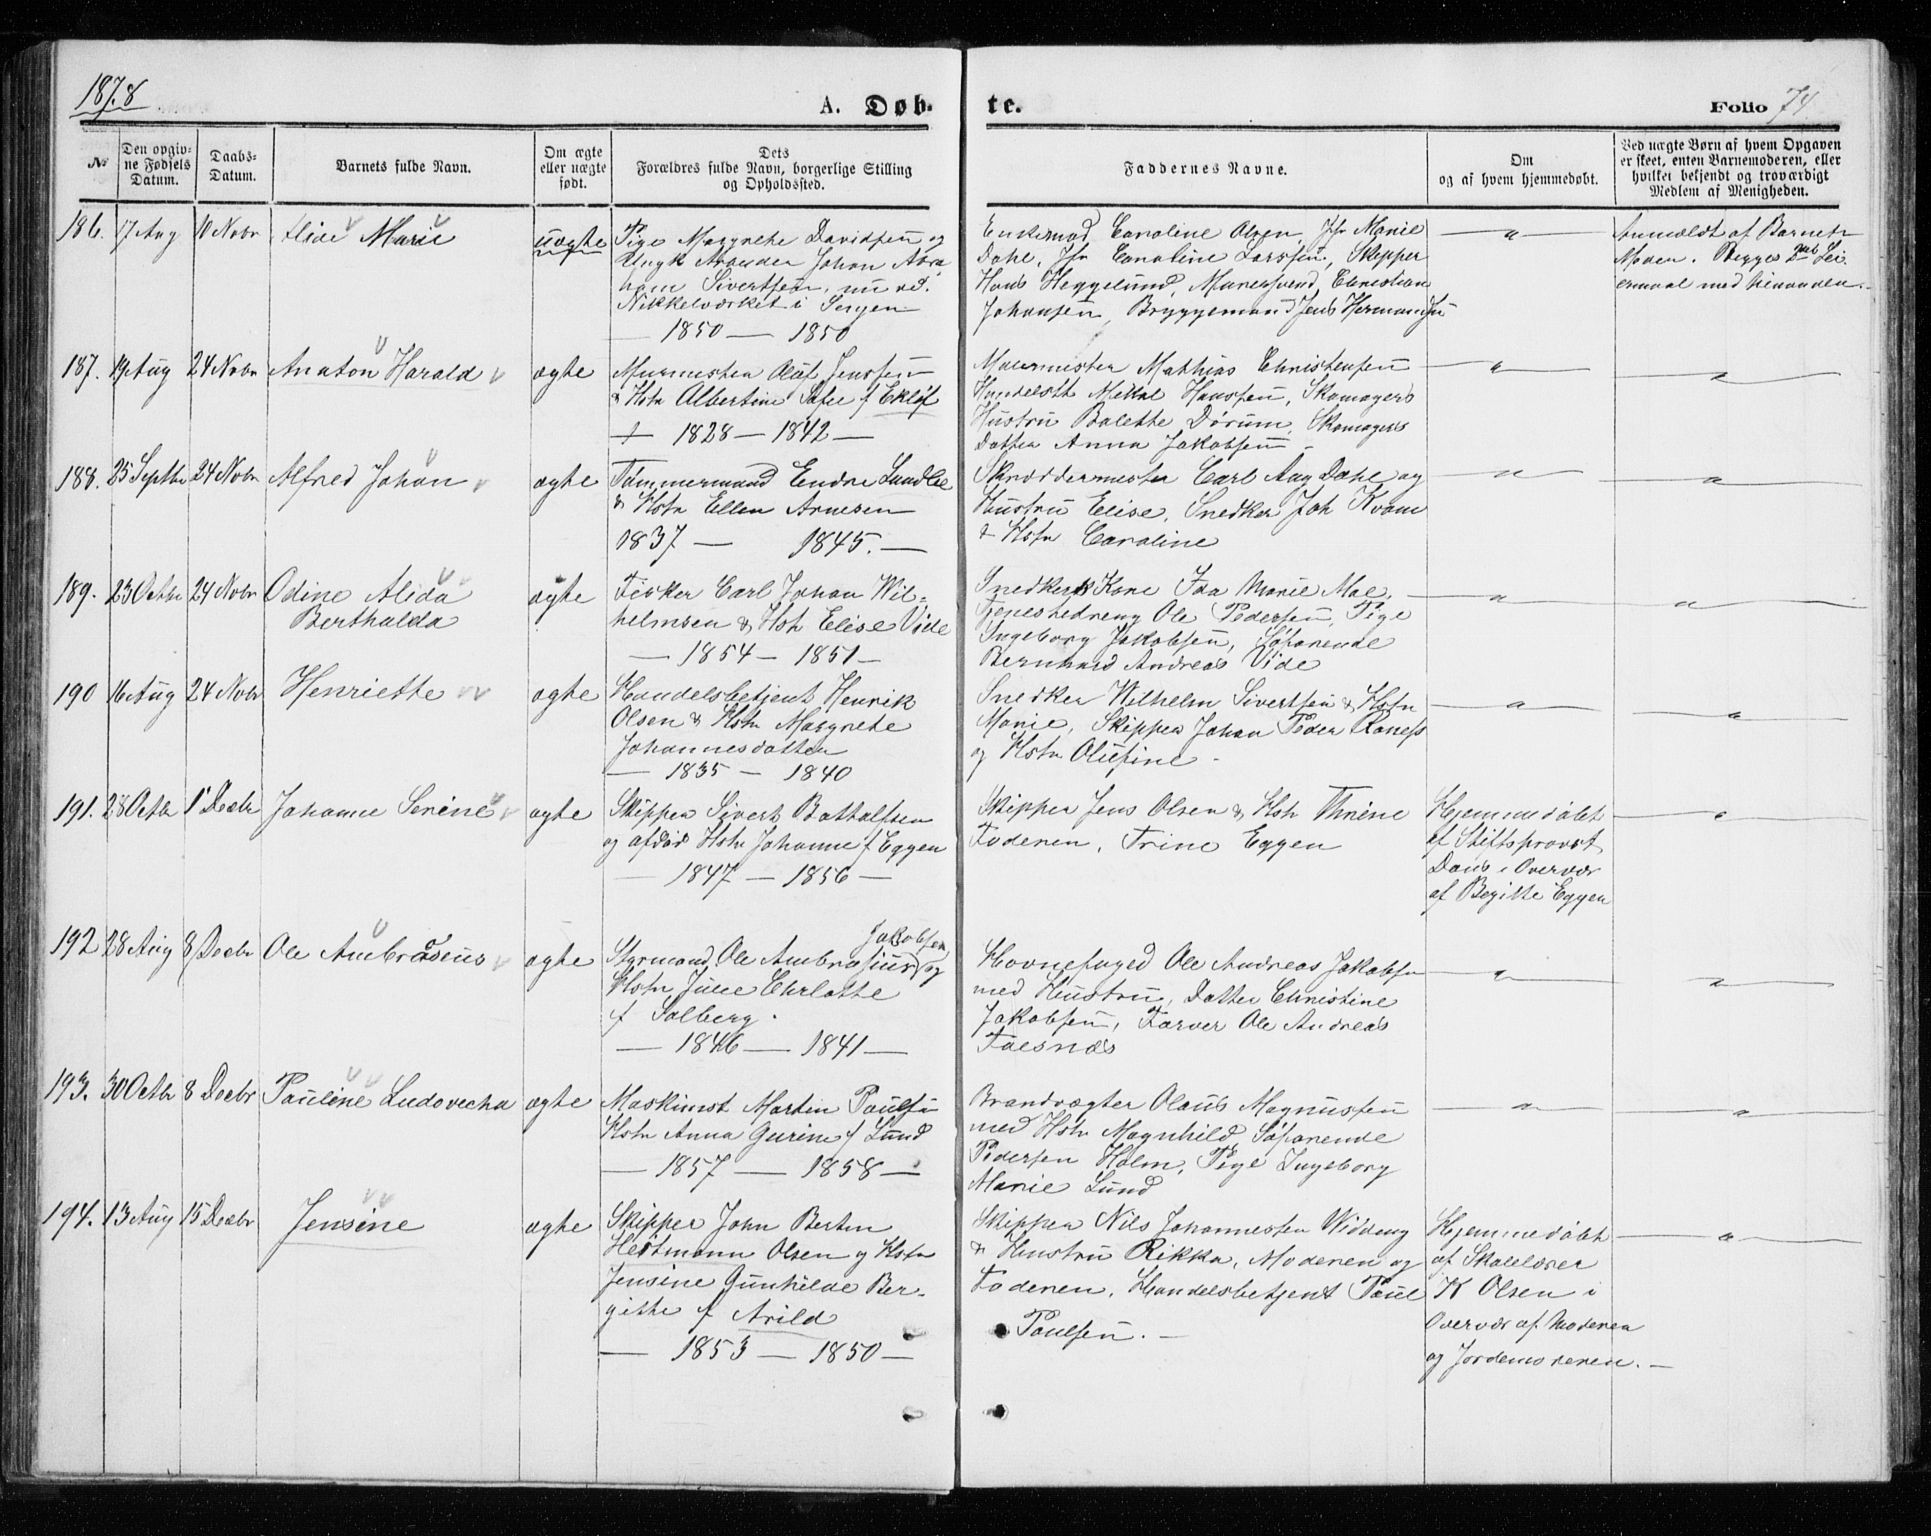 1878
A. Døb-
te.
Folio 74
No
Den opgiv-
ne Fødsels
Datum.
Daabs-
Datum.
Barnets fulde Navn.
Om ægte
eller uægte
født.
Dets
Forældres fulde Navn, borgerlige Stilling
og Opholdssted.
Faddernes Navne.
Om
og af hvem hjemmedøbt.
Ved uægte Børn af hvem Opgaven
er skeet, enten Barnemoderen, eller
hvilket bekjendt og troværdigt
Medlem af Menigheden.
186. 17 Aug 10 Novbr Alida Marie
uægte
Pige Margrethe Davidsen og
Ungk Arbeider Johan Abra
ham Sivertsen, nu ved
Nikkelværket i Senjen
— 1850 — 1850
Enkemad Caroline Olsen, Jfr Marie
Dahl, Jfr Caroline Larssen, Skipper
Hans Heggelund, Murersvend Christian
Johansen, Bryggemand Jens Hermansen
Anmeldt af Barnets
Moder. Begges 2det Lei
ermaal med hinanden.
187. 19 Aug 24 Novbr Anaton Harald ægte
Murmester Oluf Jenssen
& Hstr Albertine Sofie f Ekløf
+ 1828 — 1842 —
Muurmester Mathias Christensen
Handelsbt Mikal Hanssen, Skomagers
Hustru Balette Dørum, Skomagers
Datter Anna Jakobsen
188. 25 Septbr 24 Novbr Alfred Johan ægte
Tømmermand Endre Lundlie
& Hstr Ellen Arnesen
1837 — 1845. —
Skræddermester Carl Aug Dahl og
Hustru Elise, Snedker Joh Kvam
& Hstr Caroline
189. 23 Octbr 24 Novbr Odine Alida
Berthalda
ægte
Fisker Carl Johan Wil-
helmsen & Hstr Elise Vide
— 1854 — 1851 —
Snedker Kone Ida Marie Moe,
Tjenestedreng Ole Pedersen, Pige
Ingeborg Jakobsen, Søfarende
Bernhard Andreas Vide
190 16 Aug 24 Novbr Henriette ægte
Handelsbetjent Henrik
Olsen & Hstr Margrethe
Johannesdatter
— 1835 — 1840
Snedker Wilhelm Sivertsen & Hstr
Marie, Skipper Johan Peder Raness
og Hstr Olufine -
191. 28 Octbr 1 Decbr Johanne Serine ægte
Skipper Sivert Bottolfsen
og afdød Hstr Johanne f Eggen
— 1847 — 1856 —
Skipper Jens Olsen & Hstr Thrine
Faderen, Trine Eggen
Hjemmedøbt
af Stiftsprovst
Daus i Overvær
af Begitte Eggen
192 28 Aug 8 Decbr Ole Ambrosius ægte
Jakobsen
Styrmand Ole Ambrosius og
Hstr Julie Chrlotte
f Solberg.
— 1846 — 1841 —
Havnefoged Ole Andreas Jakobsen
med Hustru, Datter Christine
Jakobsen, Farver Ole Andreas
Falsnæs
193. 30 Octbr 8 Decbr Pauline Ludovecha ægte
Maskinist Martin Paulsen
Hstr Anna Gurine f Lund
— 1857 — 1858 —
Brandvægter Olaus Magnussen
med Hstr Magnhild, Søfarende
Pedersen Holm, Pige Ingeborg
Marie Lund
194. 13 Aug 15 Decbr Jensine ægte
Skipper John Berten
Hertmann Olsen og Hstr
Jensine Gunhilde Ber-
githe f Arild
— 1853 — 1850 —
Skipper Nils Johannessen Widding
& Hustru Rikka, Moderen og
Faderen, Handelsbetjent Paul
Paulsen. —
Hjemmedøbt
af Skolelærer
K Olsen i
Overvær af Moderen
og Jordemoderen. —